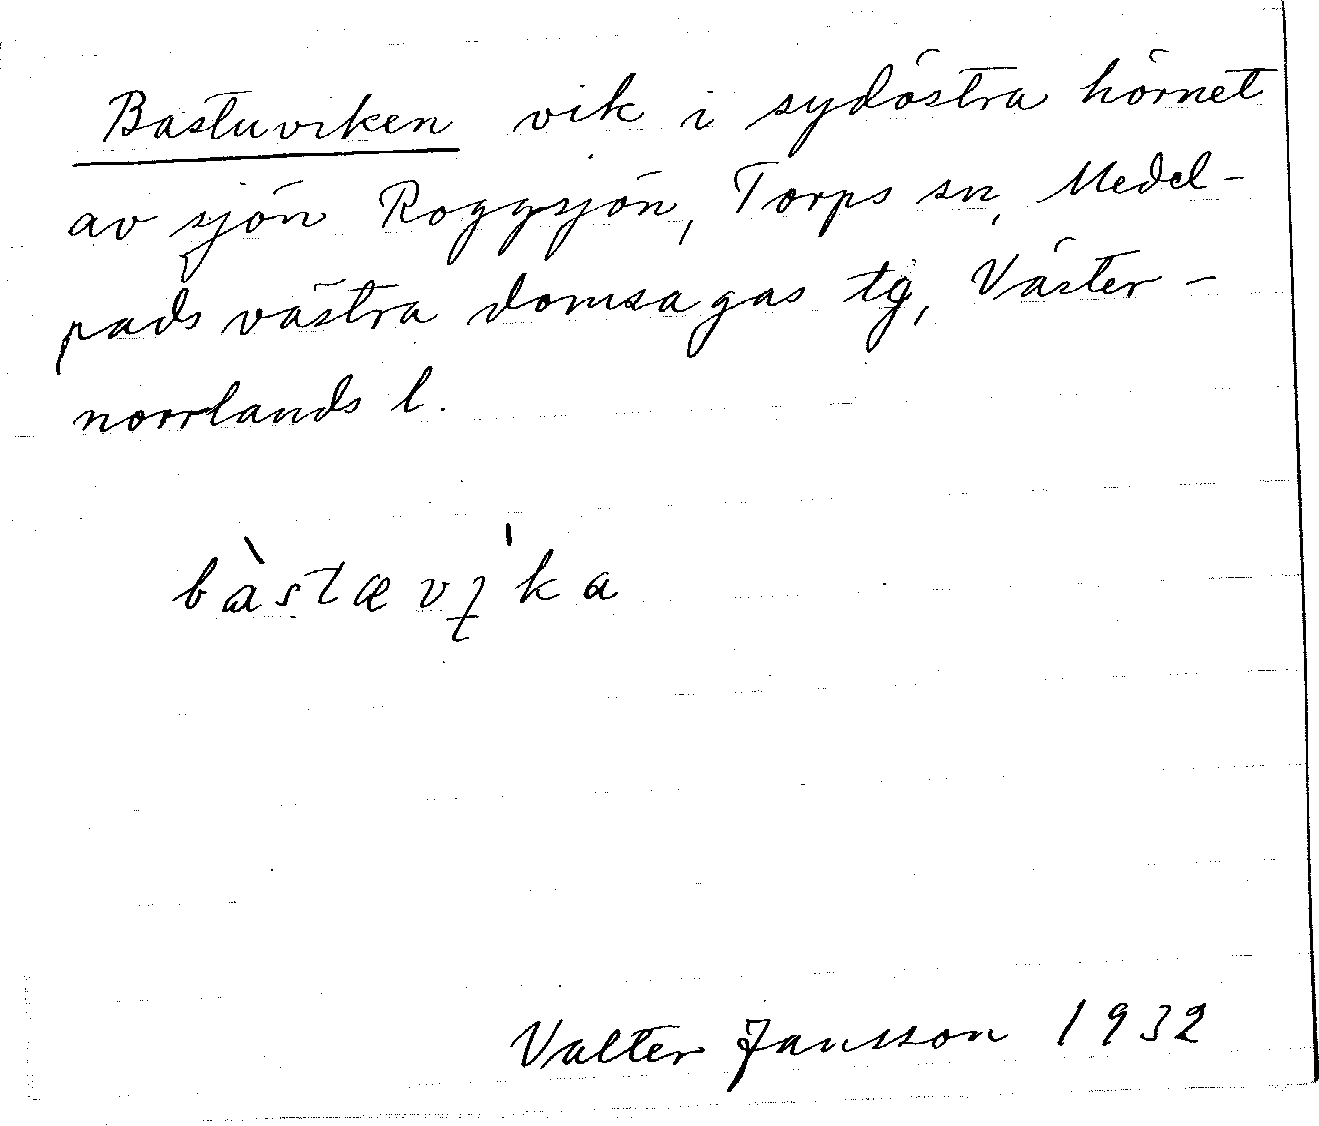 Bastuviken vik i sydöstra hörnet
av sjön Roggsjön, Torps sn, Medel-
pads västra domsagas tg, Väster-
norrlands l.
bàstævi̵ˈka
Valter Jansson 1932